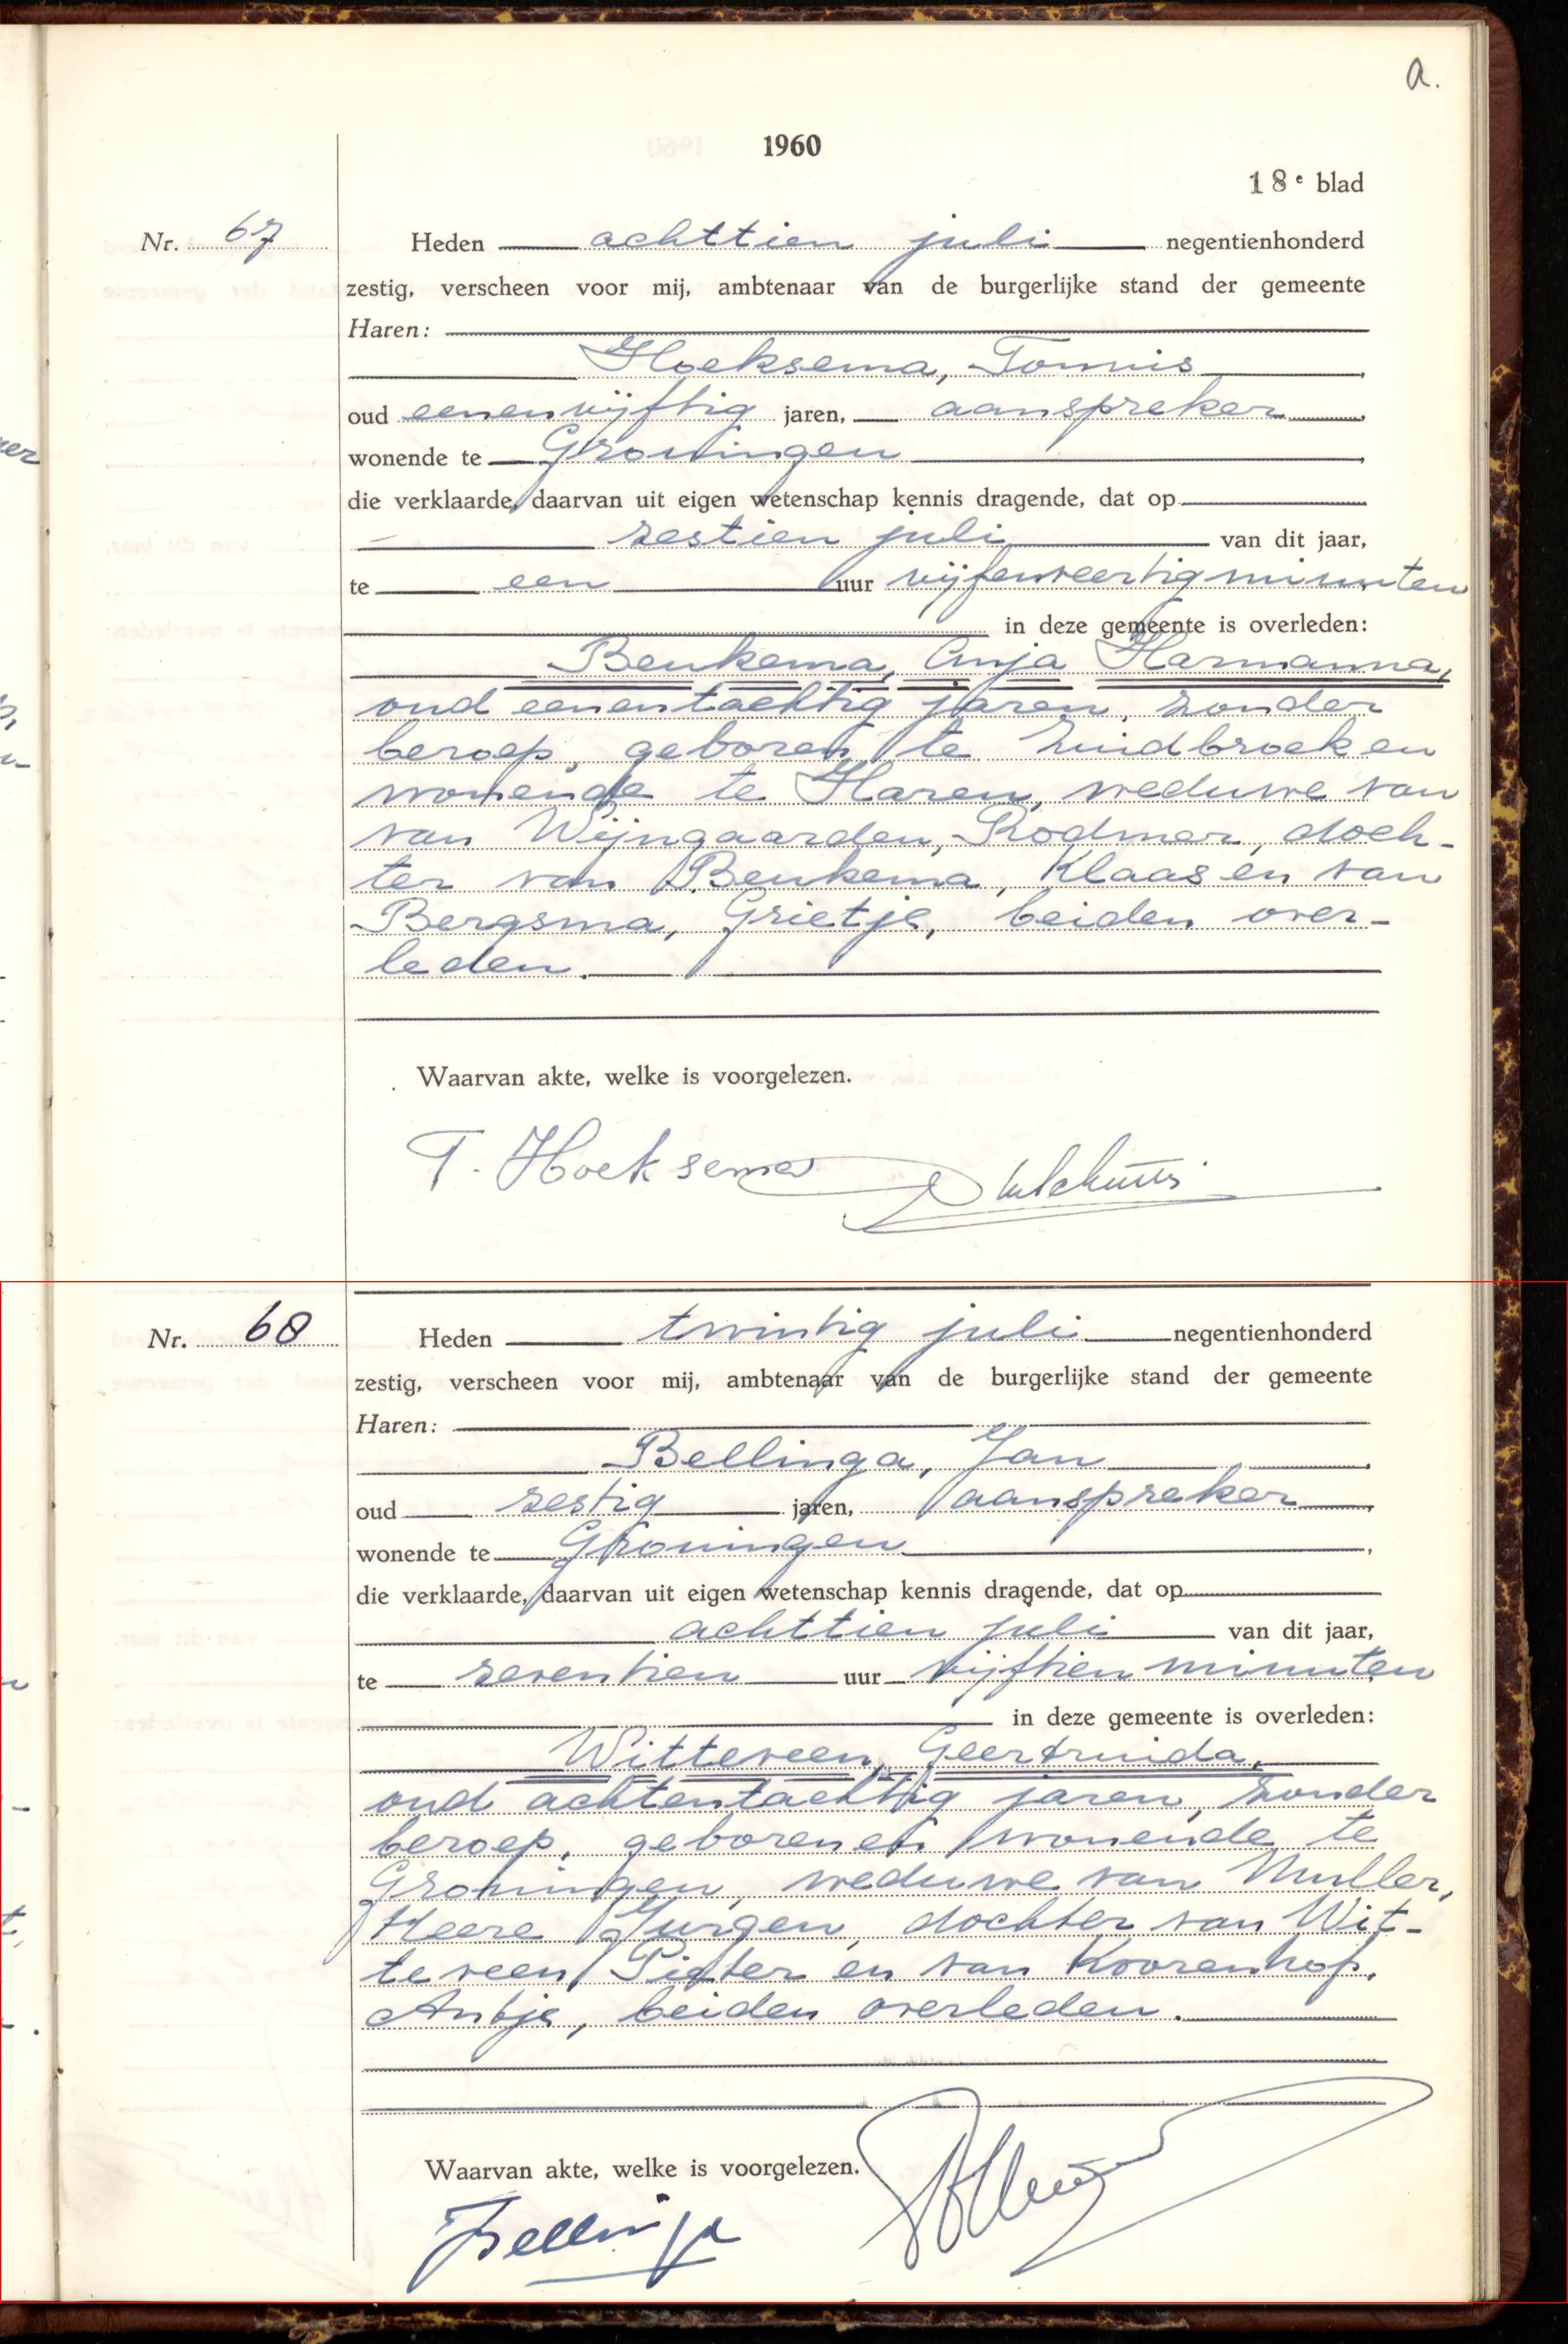 a.
1960
18e blad
Nr. 67 Heden achttien juli negentienhonderd
zestig, verscheen voor mij, ambtenaar van de burgerlijke stand der gemeente
Haren:
Hoeksema, Tonnis,
oud eenenvijftig jaren, aanspreker,
wonende te Groningen,
die verklaarde, daarvan uit eigen wetenschap kennis dragende, dat op
zestien juli van dit jaar,
te een uur vijfenveertig minuten
in deze gemeente is overleden:
Beukema, Anja Harmanna,
oud eenentachtig jaren, zonder
beroep, geboren te Zuidbroek en
wonende te Haren, weduwe van
van Wijngaarden, Rodmer, doch-
ter van Beukema, Klaas en van
Bergsma, Grietje, beiden over-
leden.
Waarvan akte, welke is voorgelezen.
T. Hoeksema
Nr. 68 Heden twintig juli negentienhonderd
zestig, verscheen voor mij, ambtenaar van de burgerlijke stand der gemeente
Haren:
Bellinga, Jan,
oud zestig jaren, aanspreker,
wonende te Groningen,
die verklaarde, daarvan uit eigen wetenschap kennis dragende, dat op
achttien juli van dit jaar,
te zeventien uur vijftien minuten
in deze gemeente is overleden:
Witteveen, Geertruida,
oud achtentachtig jaren, zonder
beroep, geboren en wonende te
Groningen, weduwe van Muller,
Heere Jurgen, dochter van Wit-
teveen, Pieter en van Koorenhof,
Antje, beiden overleden.
Waarvan akte, welke is voorgelezen.
JBellinga